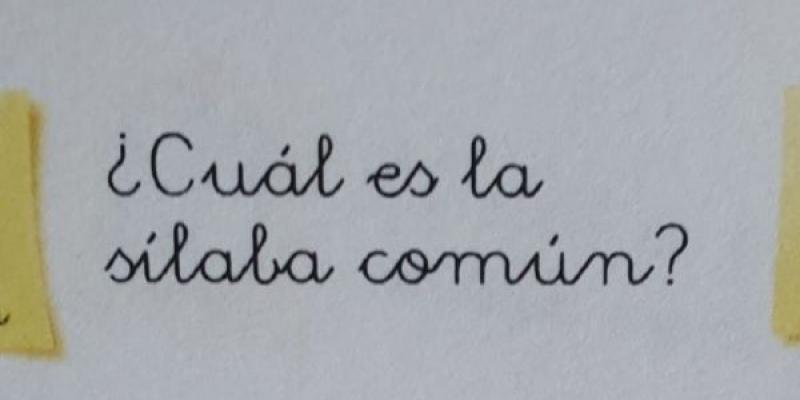 ¿Cuál es la
sílaba común?